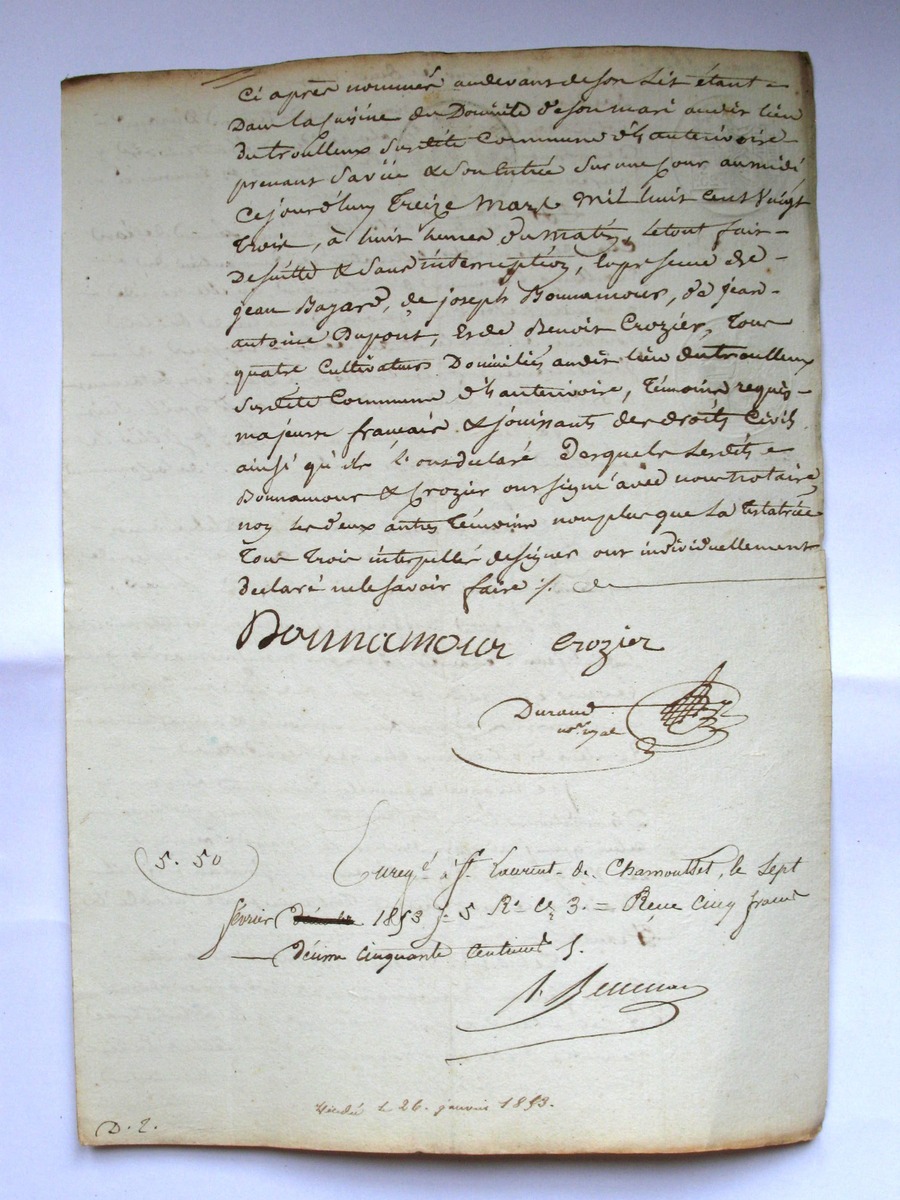 Ci après nommés audevant de son Lit étant
Dans la Cuisine du Domicile de son mari audit lieu
du trouilleux Susdite Commune d'hauterivoire
prenant Savüe & Son Entrée Sur une Cour au midi
Ce jourd'huy Treize Mars Mil huit Cent Vingt
trois, à huit heures du matin, le tout fait
De suitte & Sans interruption, En presence de
jean Bazard, de joseph Bonnamour, de jean
antoine Dupont, Et de Benoit Crozier, Tous
quatre Cultivateurs Domiciliés audit lieu du trouilleux
Susdite Commune d'hauterivoire, Témoins requis
majeurs francais & jouissants des droits Civils
ainsi qu'ils l'ont declaré Desquels Lesdits
Bonnamour & Crozier ont Signé avec nous Notaire
non les deux autres Témoins non plus que La Testatrice
Tous trois interpellés de signer ont individuellement
declaré ne le savoir faire ./.
Bonnamour Crozier
Durand
nore. ryal
5. 50
Enregé à St. Laurent-de-Chamousset, le sept
fevrier 1853 fo 5 Ro Ce 3. = Reçu cinq francs
décime cinquante centimes
Décédée le 26. janvier 1853.
D. 2.